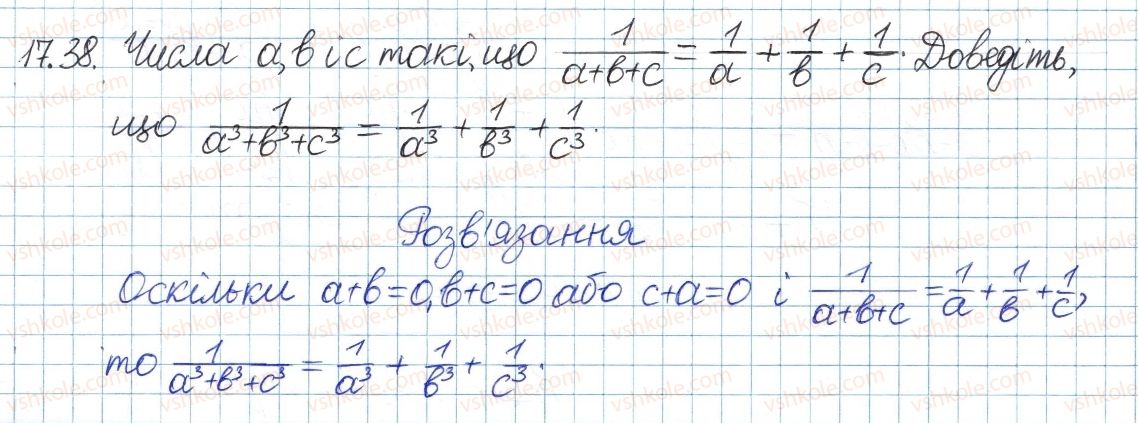 17.38. Числа a, в і с такі, що 1/(a+в+с) = 1/a + 1/в + 1/с. Доведіть,
що 1/(a³+в³+с³) = 1/a³ + 1/в³ + 1/с³.
Розв'язання
Оскільки a+в=0, в+с=0 або с+a=0 і 1/(a+в+с) = 1/a + 1/в + 1/с,
то 1/(a³+в³+с³) = 1/a³ + 1/в³ + 1/с³.